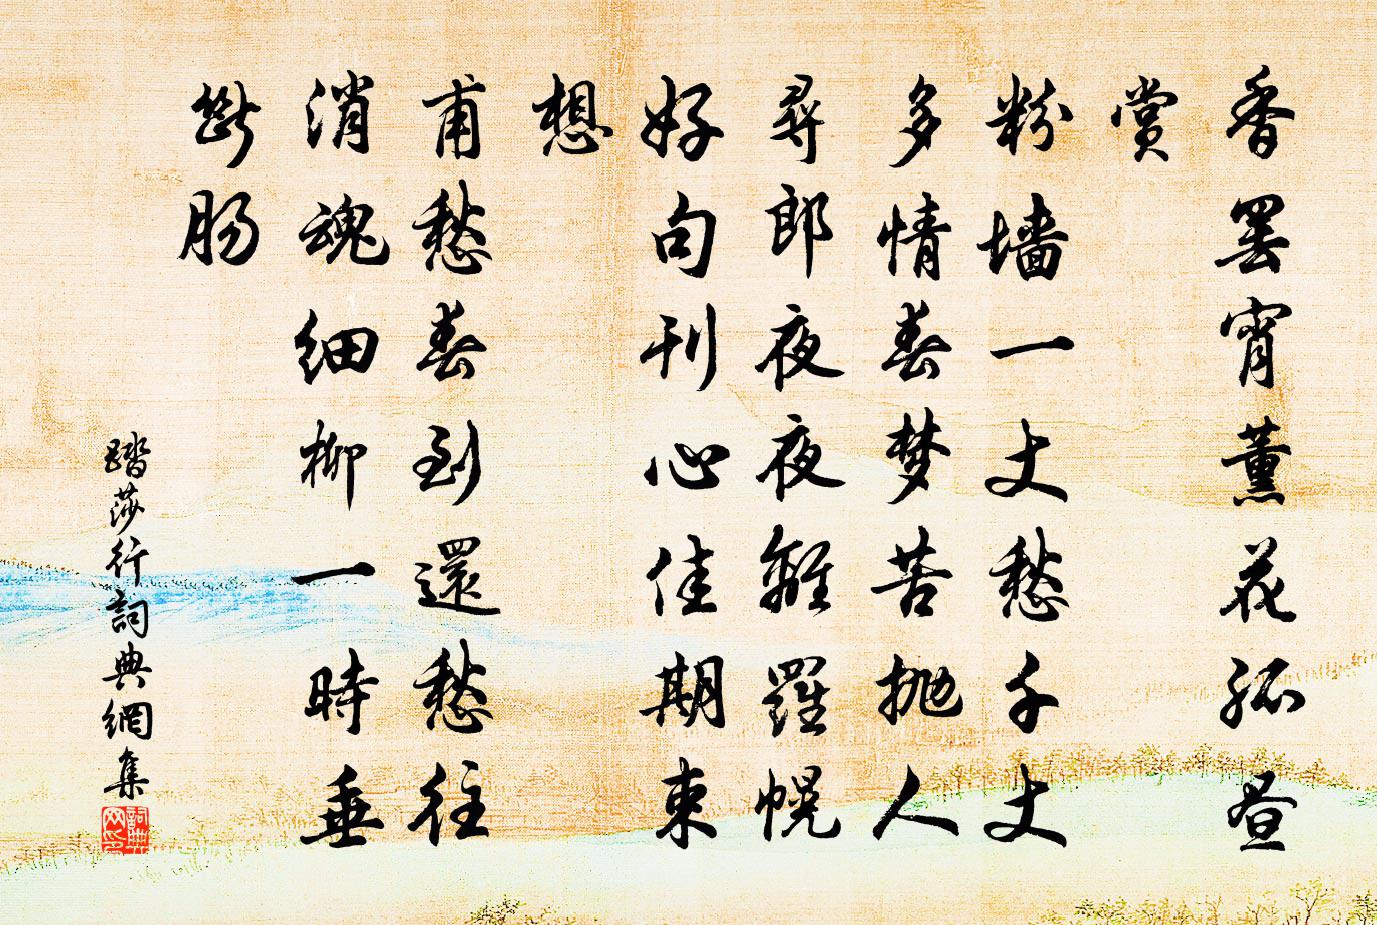 香罢宵薰花孤昼
赏
粉墙一丈愁千丈
多情春梦苦抛人
寻郎夜夜離羅幌
好句刊心佳期束
想
甫愁春到還愁往
消魂细柳一時垂
断肠
踏莎行詞典網集